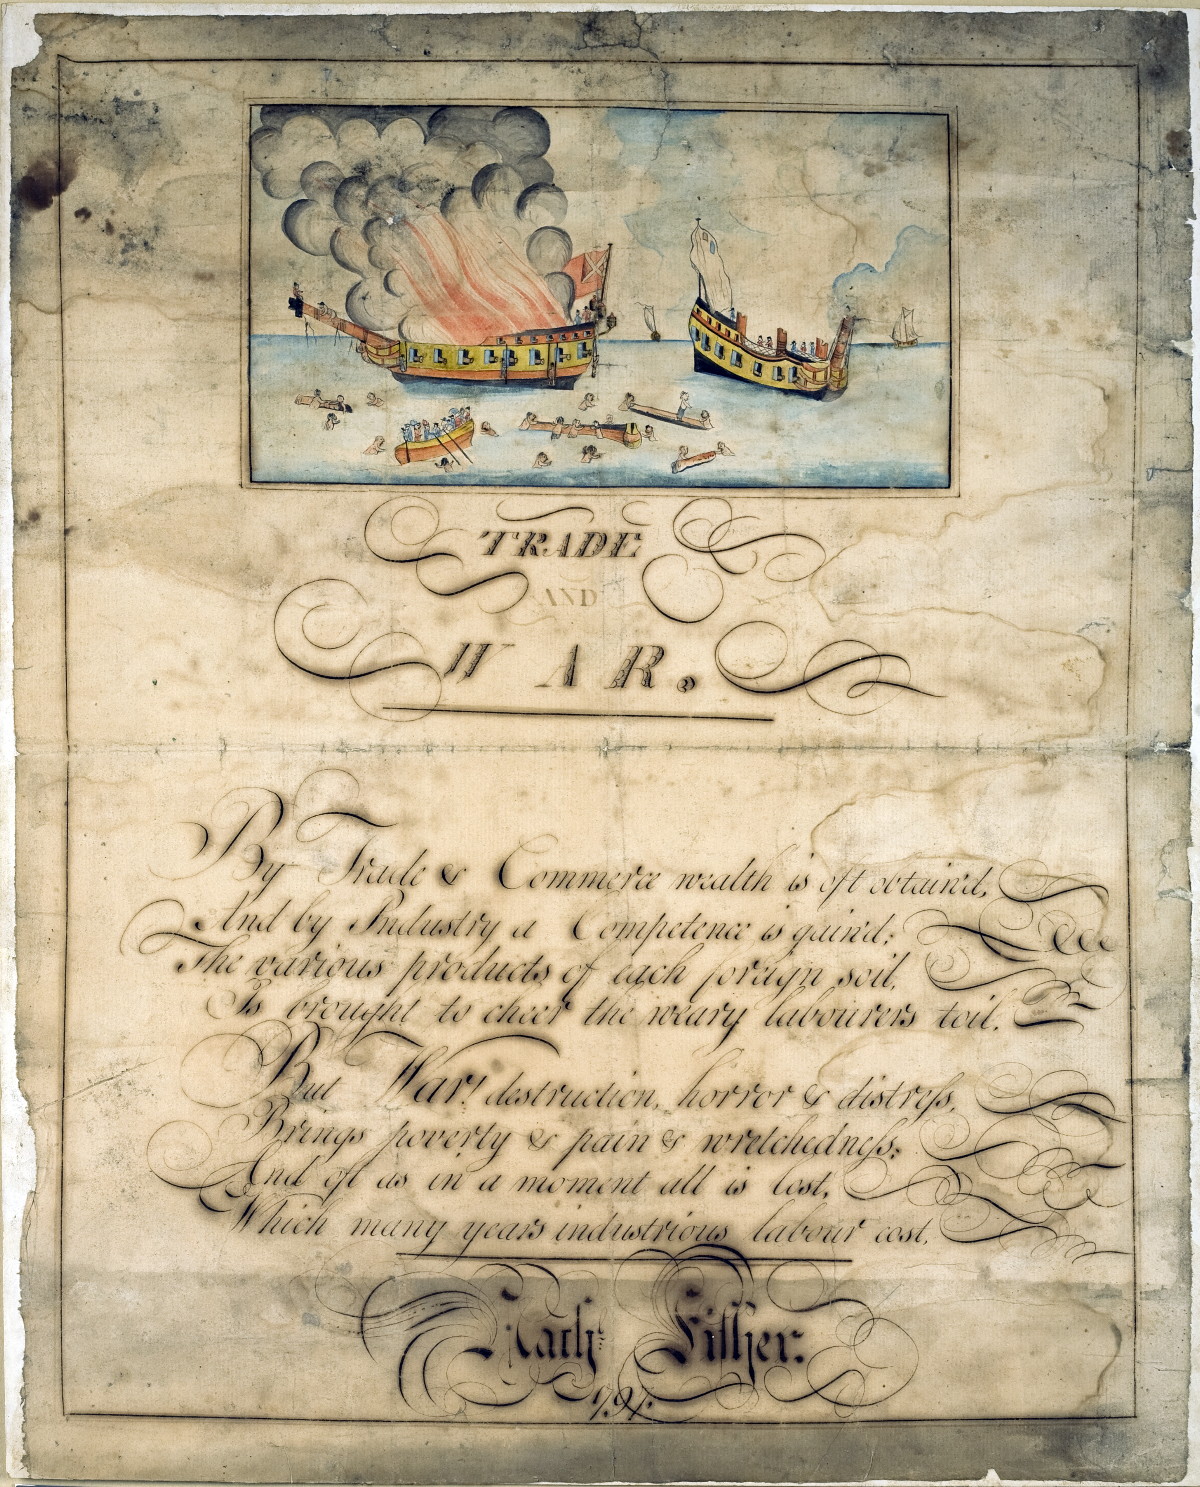 TRADE
AND
WAR.
By Trade & Commerce wealth is oft obtain'd,
And by Industry a Competence is gain'd;
The various products of each foreign soil,
Is brought to cheer the weary labourers toil.
But War! destruction, horror & distreſs,
Brings poverty & pain & wretchedneſs;
And oft as in a moment all is lost,
Which many years industrious labour cost.
Nath: Fiſher.